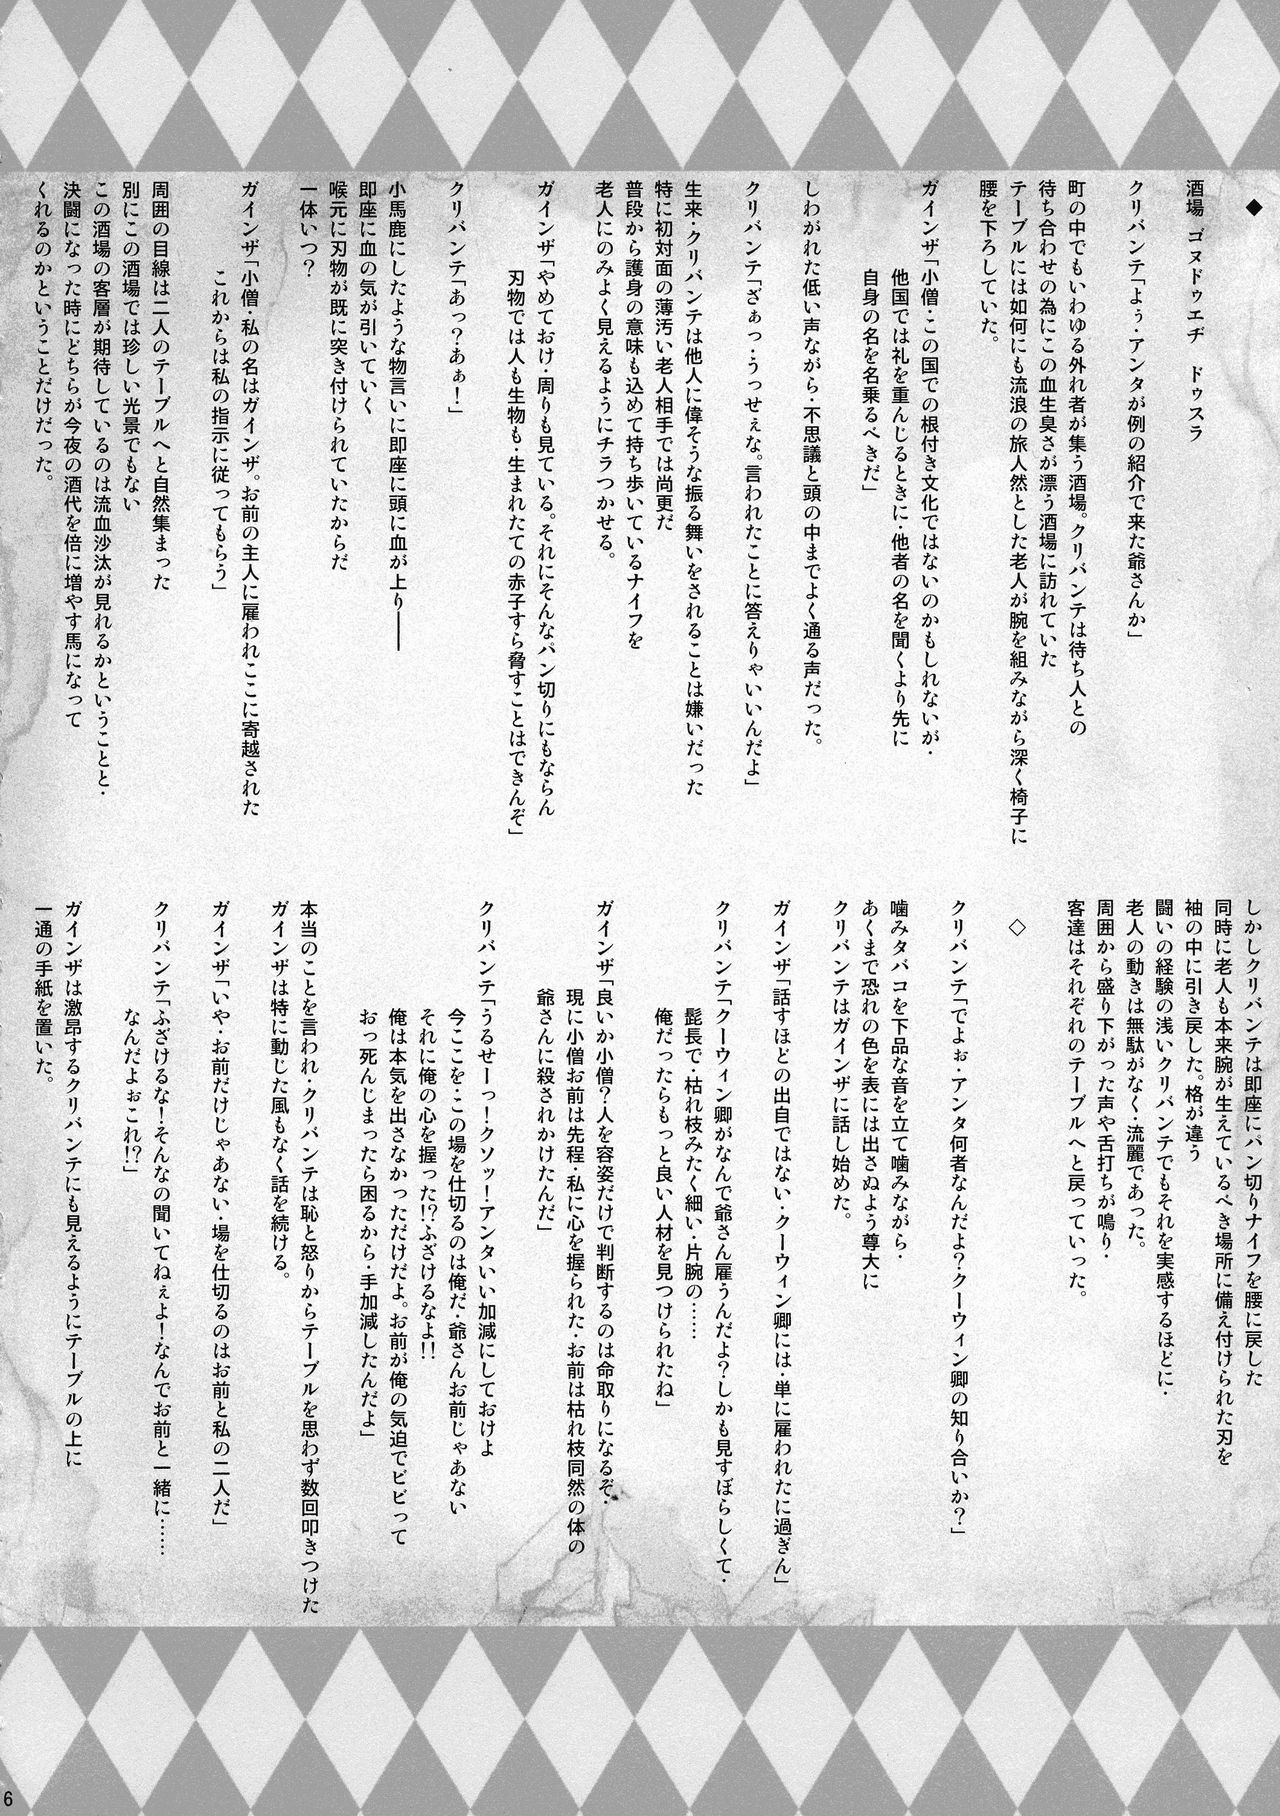 ◆
酒場 ゴヌドゥエヂ　ドゥスラ
クリバンテ「よぅ・アンタが例の紹介で来た爺さんか」
町の中でもいわゆる外れ者が集う酒場。クリバンテは待ち人との
待ち合わせの為にこの血生臭さが漂う酒場に訪れていた
テーブルには如何にも流浪の旅人然とした老人が腕を組みながら深く椅子に
腰を下ろしていた。
ガインザ「小僧・この国での根付き文化ではないのかもしれないが・
他国では礼を重んじるときに・他者の名を聞くより先に
自身の名を名乗るべきだ」
しわがれた低い声ながら・不思議と頭の中までよく通る声だった。
クリバンテ「ざぁっ・うっせぇな。言われたことに答えりゃいいんだよ」
生来・クリバンテは他人に偉そうな振る舞いをされることは嫌いだった
特に初対面の薄汚い老人相手では尚更だ
普段から護身の意味も込めて持ち歩いているナイフを
老人にのみよく見えるようにチラつかせる。
ガインザ「やめておけ・周りも見ている。それにそんなパン切りにもならん
刃物では人も生物も・生まれたての赤子すら脅すことはできんぞ」
クリバンテ「あっ？あぁ！」
小馬鹿にしたような物言いに即座に頭に血が上り――
即座に血の気が引いていく
喉元に刃物が既に突き付けられていたからだ
一体いつ？
ガインザ「小僧・私の名はガインザ。お前の主人に雇われここに寄越された
これからは私の指示に従ってもらう」
周囲の目線は二人のテーブルへと自然集まった
別にこの酒場では珍しい光景でもない
この酒場の客層が期待しているのは流血沙汰が見れるかということと・
決闘になった時にどちらが今夜の酒代を倍に増やす馬になって
くれるのかということだけだった。
しかしクリバンテは即座にパン切りナイフを腰に戻した
同時に老人も本来腕が生えているべき場所に備え付けられた刃を
袖の中に引き戻した。格が違う
闘いの経験の浅いクリバンテでもそれを実感するほどに・
老人の動きは無駄がなく・流麗であった。
周囲から盛り下がった声や舌打ちが鳴り・
客達はそれぞれのテーブルへと戻っていった。
◇
クリバンテ「でよぉ・アンタ何者なんだよ？クーウィン卿の知り合いか？」
噛みタバコを下品な音を立て噛みながら・
あくまで恐れの色を表には出さぬよう尊大に
クリバンテはガインザに話し始めた。
ガインザ「話すほどの出自ではない・クーウィン卿には・単に雇われたに過ぎん」
クリバンテ「クーウィン卿がなんで爺さん雇うんだよ？しかも見すぼらしくて・
髭長で・枯れ枝みたく細い・片腕の……
俺だったらもっと良い人材を見つけられたね」
ガインザ「良いか小僧？人を容姿だけで判断するのは命取りになるぞ・
現に小僧お前は先程・私に心を握られた・お前は枯れ枝同然の体の
爺さんに殺されかけたんだ」
クリバンテ「うるせーっ！クソッ！アンタいい加減にしておけよ
今ここを・この場を仕切るのは俺だ・爺さんお前じゃあない
それに俺の心を握った!?ふざけるなよ!!
俺は本気を出さなかっただけだよ。お前が俺の気迫でビビって
おっ死んじまったら困るから・手加減したんだよ」
本当のことを言われ・クリバンテは恥と怒りからテーブルを思わず数回叩きつけた
ガインザは特に動じた風もなく話を続ける。
ガインザ「いや・お前だけじゃあない・場を仕切るのはお前と私の二人だ」
クリバンテ「ふざけるな！そんなの聞いてねぇよ！なんでお前と一緒に……
なんだよぉこれ!?」
ガインザは激昂するクリバンテにも見えるようにテーブルの上に
一通の手紙を置いた。
6